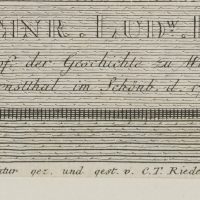 INR. LUDW.
der Geschichte zu
im Schönb. d.
gez. und gest. v. C. T. Riede